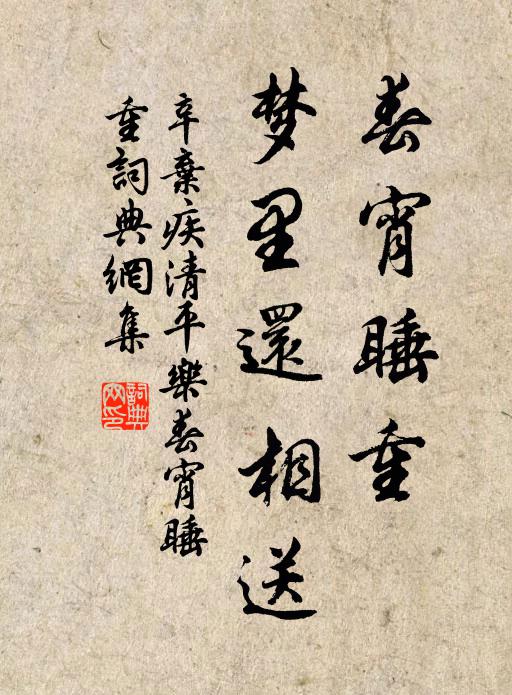 春宵睡重
梦里還相送
辛棄疾清平樂春宵睡
重詞典網集
詞典
网印